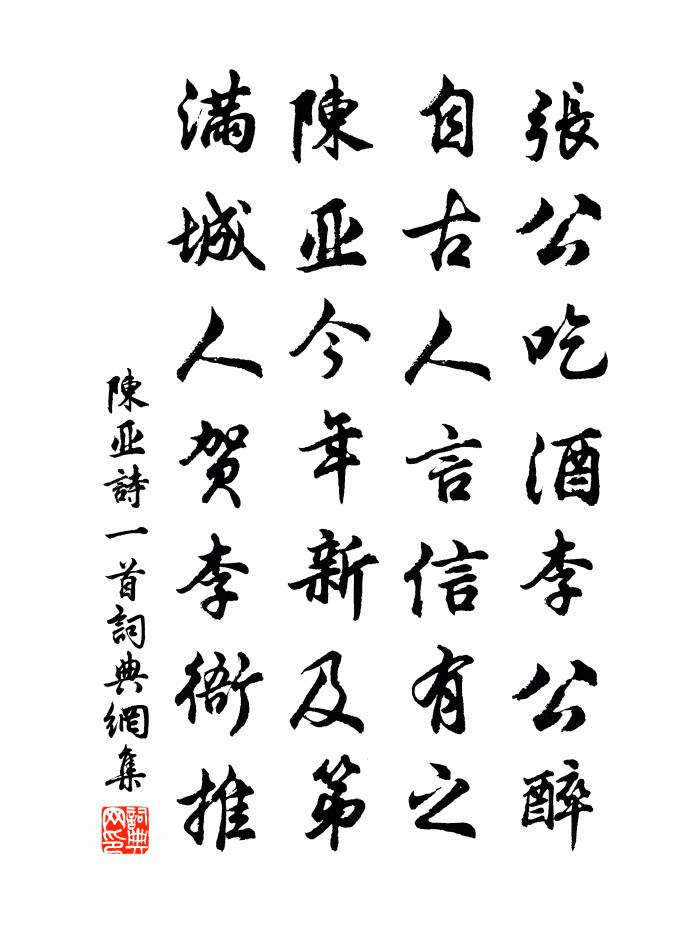 張公吃酒李公醉
自古人言信有之
陳亚今年新及第
满城人贺李衙推
陳亚詩一首詞典網集
詞典网印